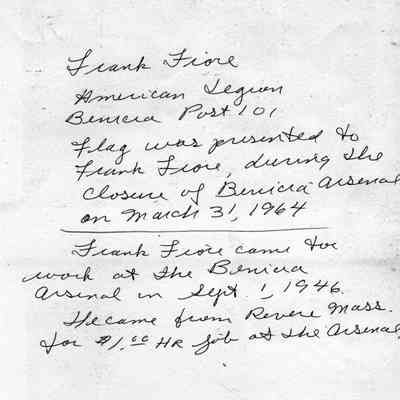 Frank Fiore
American Legion
Benicia Post 101
Flag was presented to
Frank Fiore, during the
closure of Benicia Arsenal
on March 31, 1964
Frank Fiore came to
work at the Benicia
Arsenal in Sept. 1, 1946.
He came from Revere Mass.
for $1.00 HR job at the Arsenal.